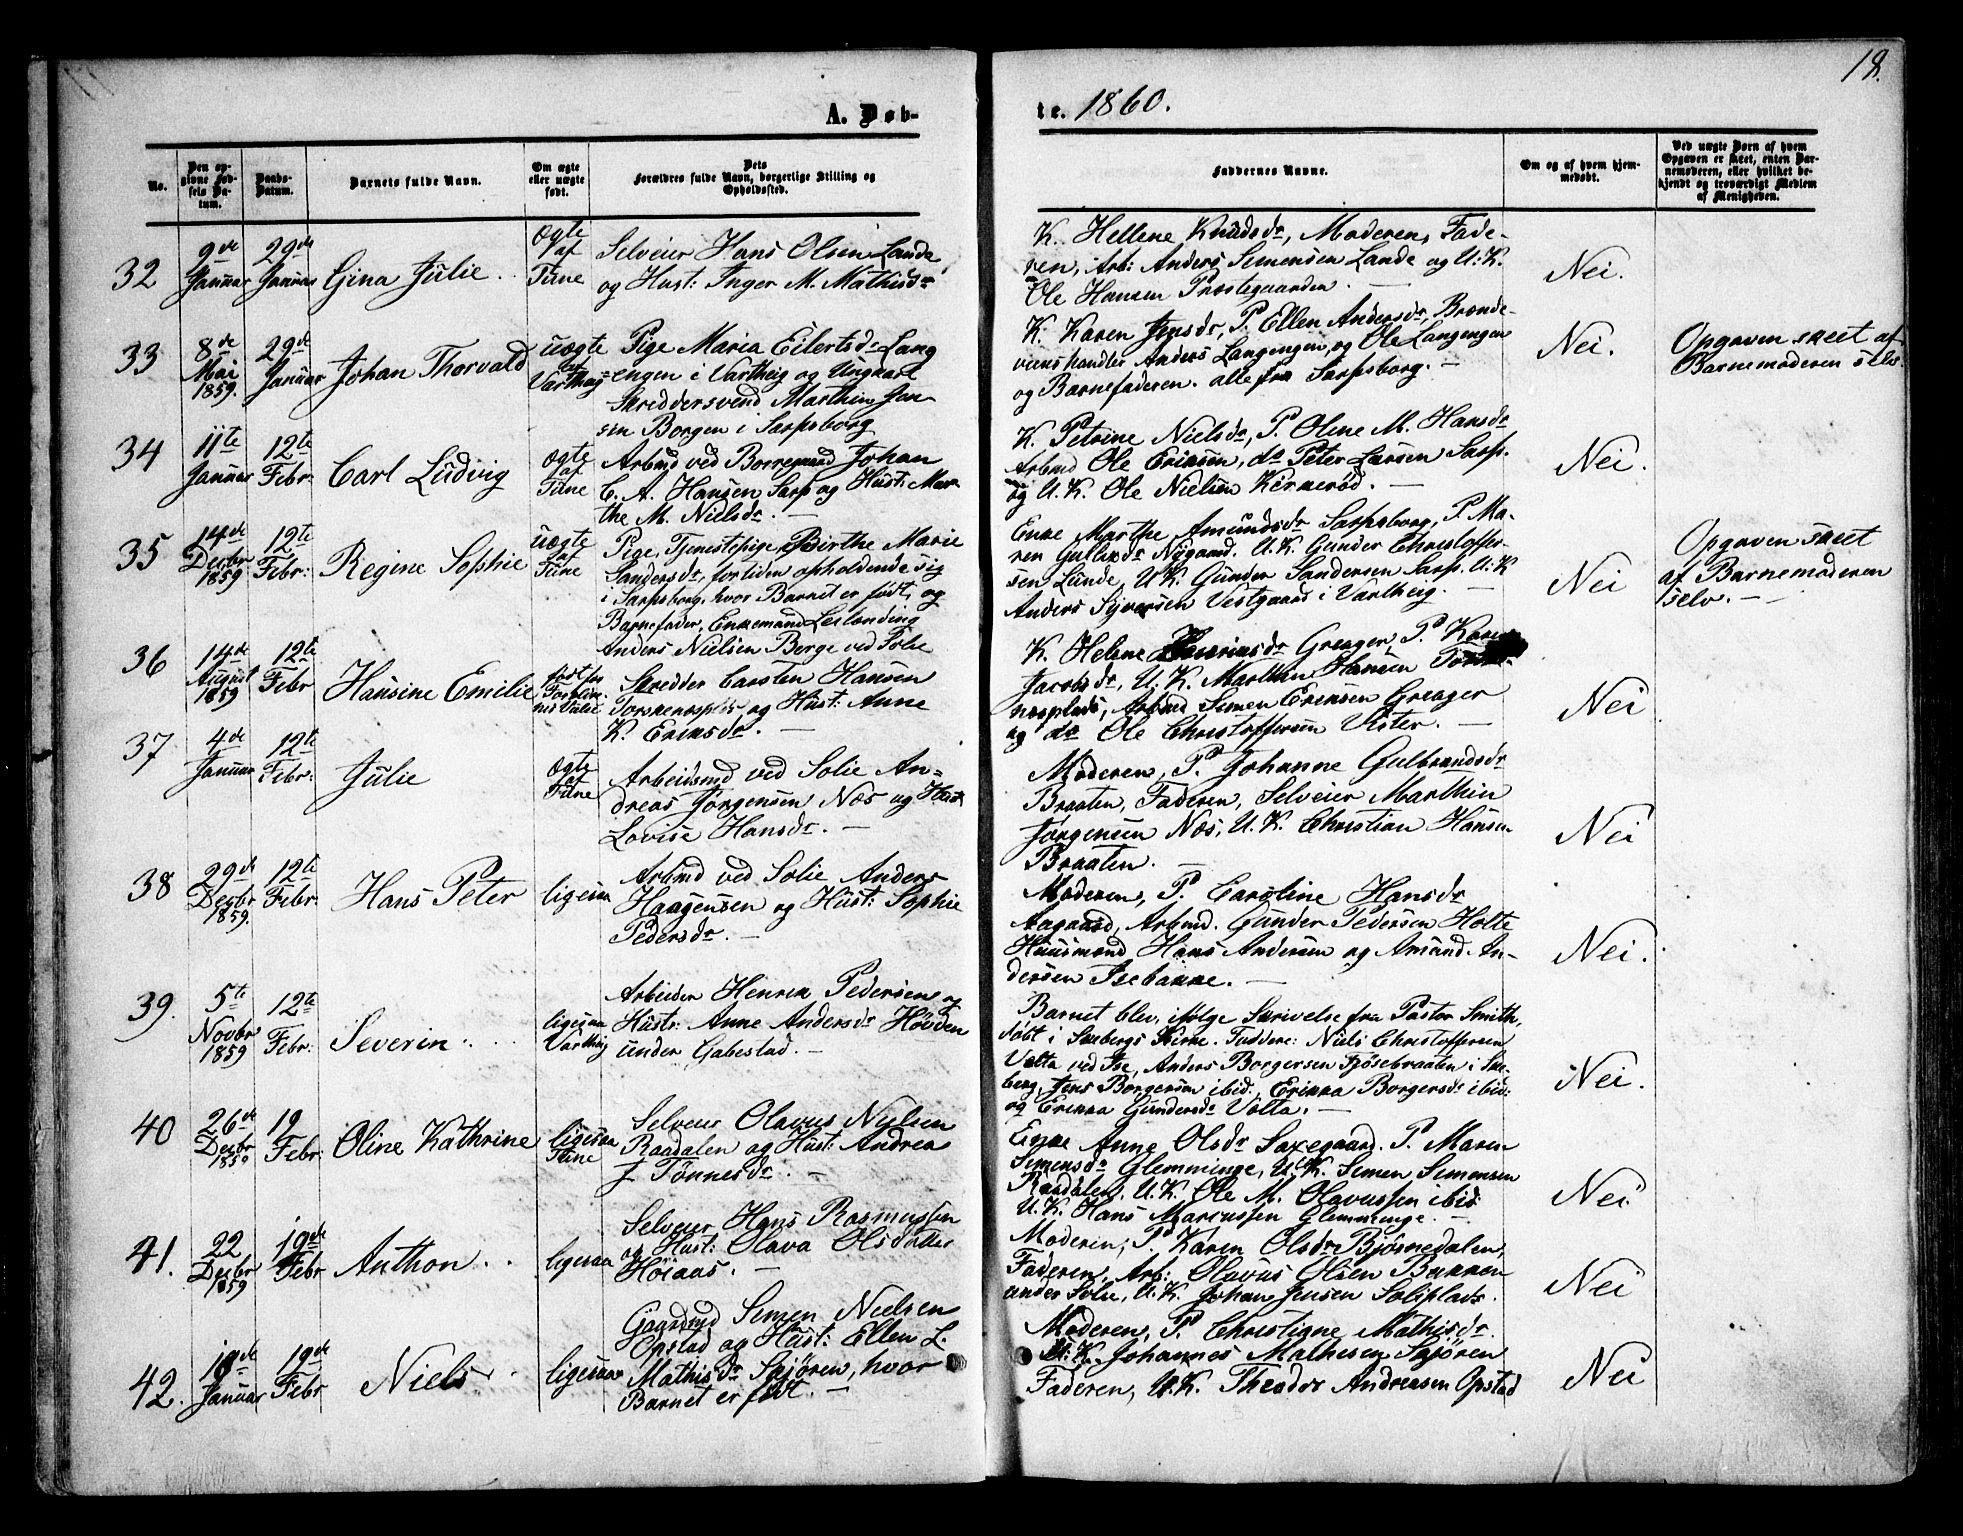 18.
A. Døb-
te. 1860.
No.
Den op-
givne Fød-
sels Da-
tum.
Daabs-
Datum.
Barnets fulde Navn.
Om ægte
eller uægte
født.
Dets
Forældres fulde Navn, borgerlige Stilling og
Opholdssted.
Faddernes Navne.
Om og af hvem hjem-
medøbt.
Ved uægte Born af hvem
Opgaven er skeet, enten Bar-
nemoderen, eller hvilket be-
kjendt og troværdigt Medlem
af Menigheden.
32
9de
Januar
29de
Januar
Gina Julie
Ægte
af
Tune
Selveier Hans Olsen Lande
og Hust: Inger M. Mathisdr
K. Hellene Knudsdr, Moderen, Fade-
ren, Arb: Anders Simensen Lande og U: K.
Ole Hansen Præstegaarden.
Nei.
33
8de
Mai
1859.
29de
Januar
Johan Thorvald
uægte
Vartheig
Pige Maria Eilertsdr Lang
engen i Vartheig og Ungkarl
Skreddersvend Marthin Jan-
sen Borgen i Sarpsborg
K. Karen Jensdr, P. Ellen Andersdr, Brænde-
viinshandler Anders Langengen, og Ole Langengen
og Barnefaderen. alle fra Sarpsborg.
Nei.
Opgaven skeet af
Barnemoderen selv.
34
11te
Januar
12te
Febr:
Carl Ludvig
Ægte
af
Tune
Arbmd ved Borregaard Johan
C. A. Hansen Sarp og Hust: Mar
the M. Nielsdr.
K. Petrine Nielsdr, P. Oline M. Hansdr
Arbmd Ole Eriksen, do Peter Larsen Sarp.
og U. K. Ole Nielsen Kirkerød.
Nei.
35
14de
Decbr
1859
12te
Febr:
Regine Sophie
uægte
af
Tune
Pige, Tjenestepige Birthe Marie
Sandersdr, for tiden opholdende sig
i Sarpsborg, hvor Barnet er født, og
Barnefader, Enkemand Leilænding
Anders Nielsen Berge ved Solie
Enke Marthe Amundsdr Sarpsborg, P. Ma-
ren Gulliksdr Nygaard. U. K. Gunder Christoffer-
sen Lunde, U. K. Gunder Sandersen Sarp. U: K
Anders Syversen Vestgaard i Vartheig.
Nei
Opgaven skeet
af Barnemoderen
selv.
36
14de
August
1859
12te
Febr
Hansine Emilie
født før
Forældre-
nes Vielse
Skredder Carsten Hansen
Torskenæsplds og Hust: Anne
K. Eriksdr.
K. Helene Greager, P. Karen
Jacobsdr, U. K. Marthin Hansen Torske-
næsplads, Arbmd Simen Eriksen Greager
og do Ole Christoffersen Vister.
Nei
37
4de
Januar
12te
Febr:
Julie
Ægte
af
Tune
Arbeidsmd ved Solie An-
dreas Jørgensen Næs og Hust
Lovise Hansdr.
Moderen, P. Johanne Gulbrandsdr
Braaten, Faderen, Selveier Marthin
Jørgensen Næs, U. K. Christian Hansen
Braaten.
Nei
38
29de
Decbr
1859.
12te
Febr.
Hans Peter
ligesaa
Arbmd ved Solie Anders
Haagensen og Hust: Sophie
Pedersdr.
Moderen, P. Caroline Hansdr
Aagaard, Arbmd. Gunder Pedersen Holte
Huusmand Hans Andersen og Amund An-
dersen Isebakke.
Nei.
39.
5te
Novbr
1859
12te
Febr:
Severin
ligesaa
Vartheig
Arbeider Henrik Pedersen og
Hustr: Anne Andersdr Høvden
under Gabestad.
Barnet blev, ifølge Skrivelse fra Pastor Smith,
døbt i Skebergs Kirke. Faddere: Niels Christoffersen
Volta ved Ise, Anders Borgersen Fjøsebraaten i Ske-
berg, Jens Borgersen ibid:, Erikka Borgersdr ibid:
og Erikka Gundersdr Volta.
Nei.
40
26de
Decbr
1859
19
Febr:
Oline Kathrine
ligesaa
Tune
Selveier Olavus Nielsen
Raadalen og Hust: Andrea
J Tønnesdr.
Enke Anne Olsdr Saxegaard. P. Maren
Simensdr Glemminge, U. K. Simen Simensen
Raadalen, U. K. Ole M. Olavussen ibid
U. K. Hans Marcussen Glemminge.
Nei
41.
22
Decbr
1859
19de
Febr
Anthon
ligesaa
Selveier Hans Rasmussen
og Hust: Olava Olsdatter
Høiaas.
Moderen, P. Karen Olsdr Bjørnedalen,
Faderen, Arb: Olavus Olsen Bakken
under Solie, U. K. Johan Jensen Solieplads.
Nei
42.
18de
Januar
19de
Febr
Niels
ligesaa
Gaardmd Simen Nielsen
Opstad og Hust: Ellen L.
Mathisdr Skjøren, hvor
Barnet er født.
Moderen, P. Christiane Mathisdr.
U. K. Johannes Mathesen Skjøren
Faderen, U. K. Theodor Andreasen Opstad
Nei